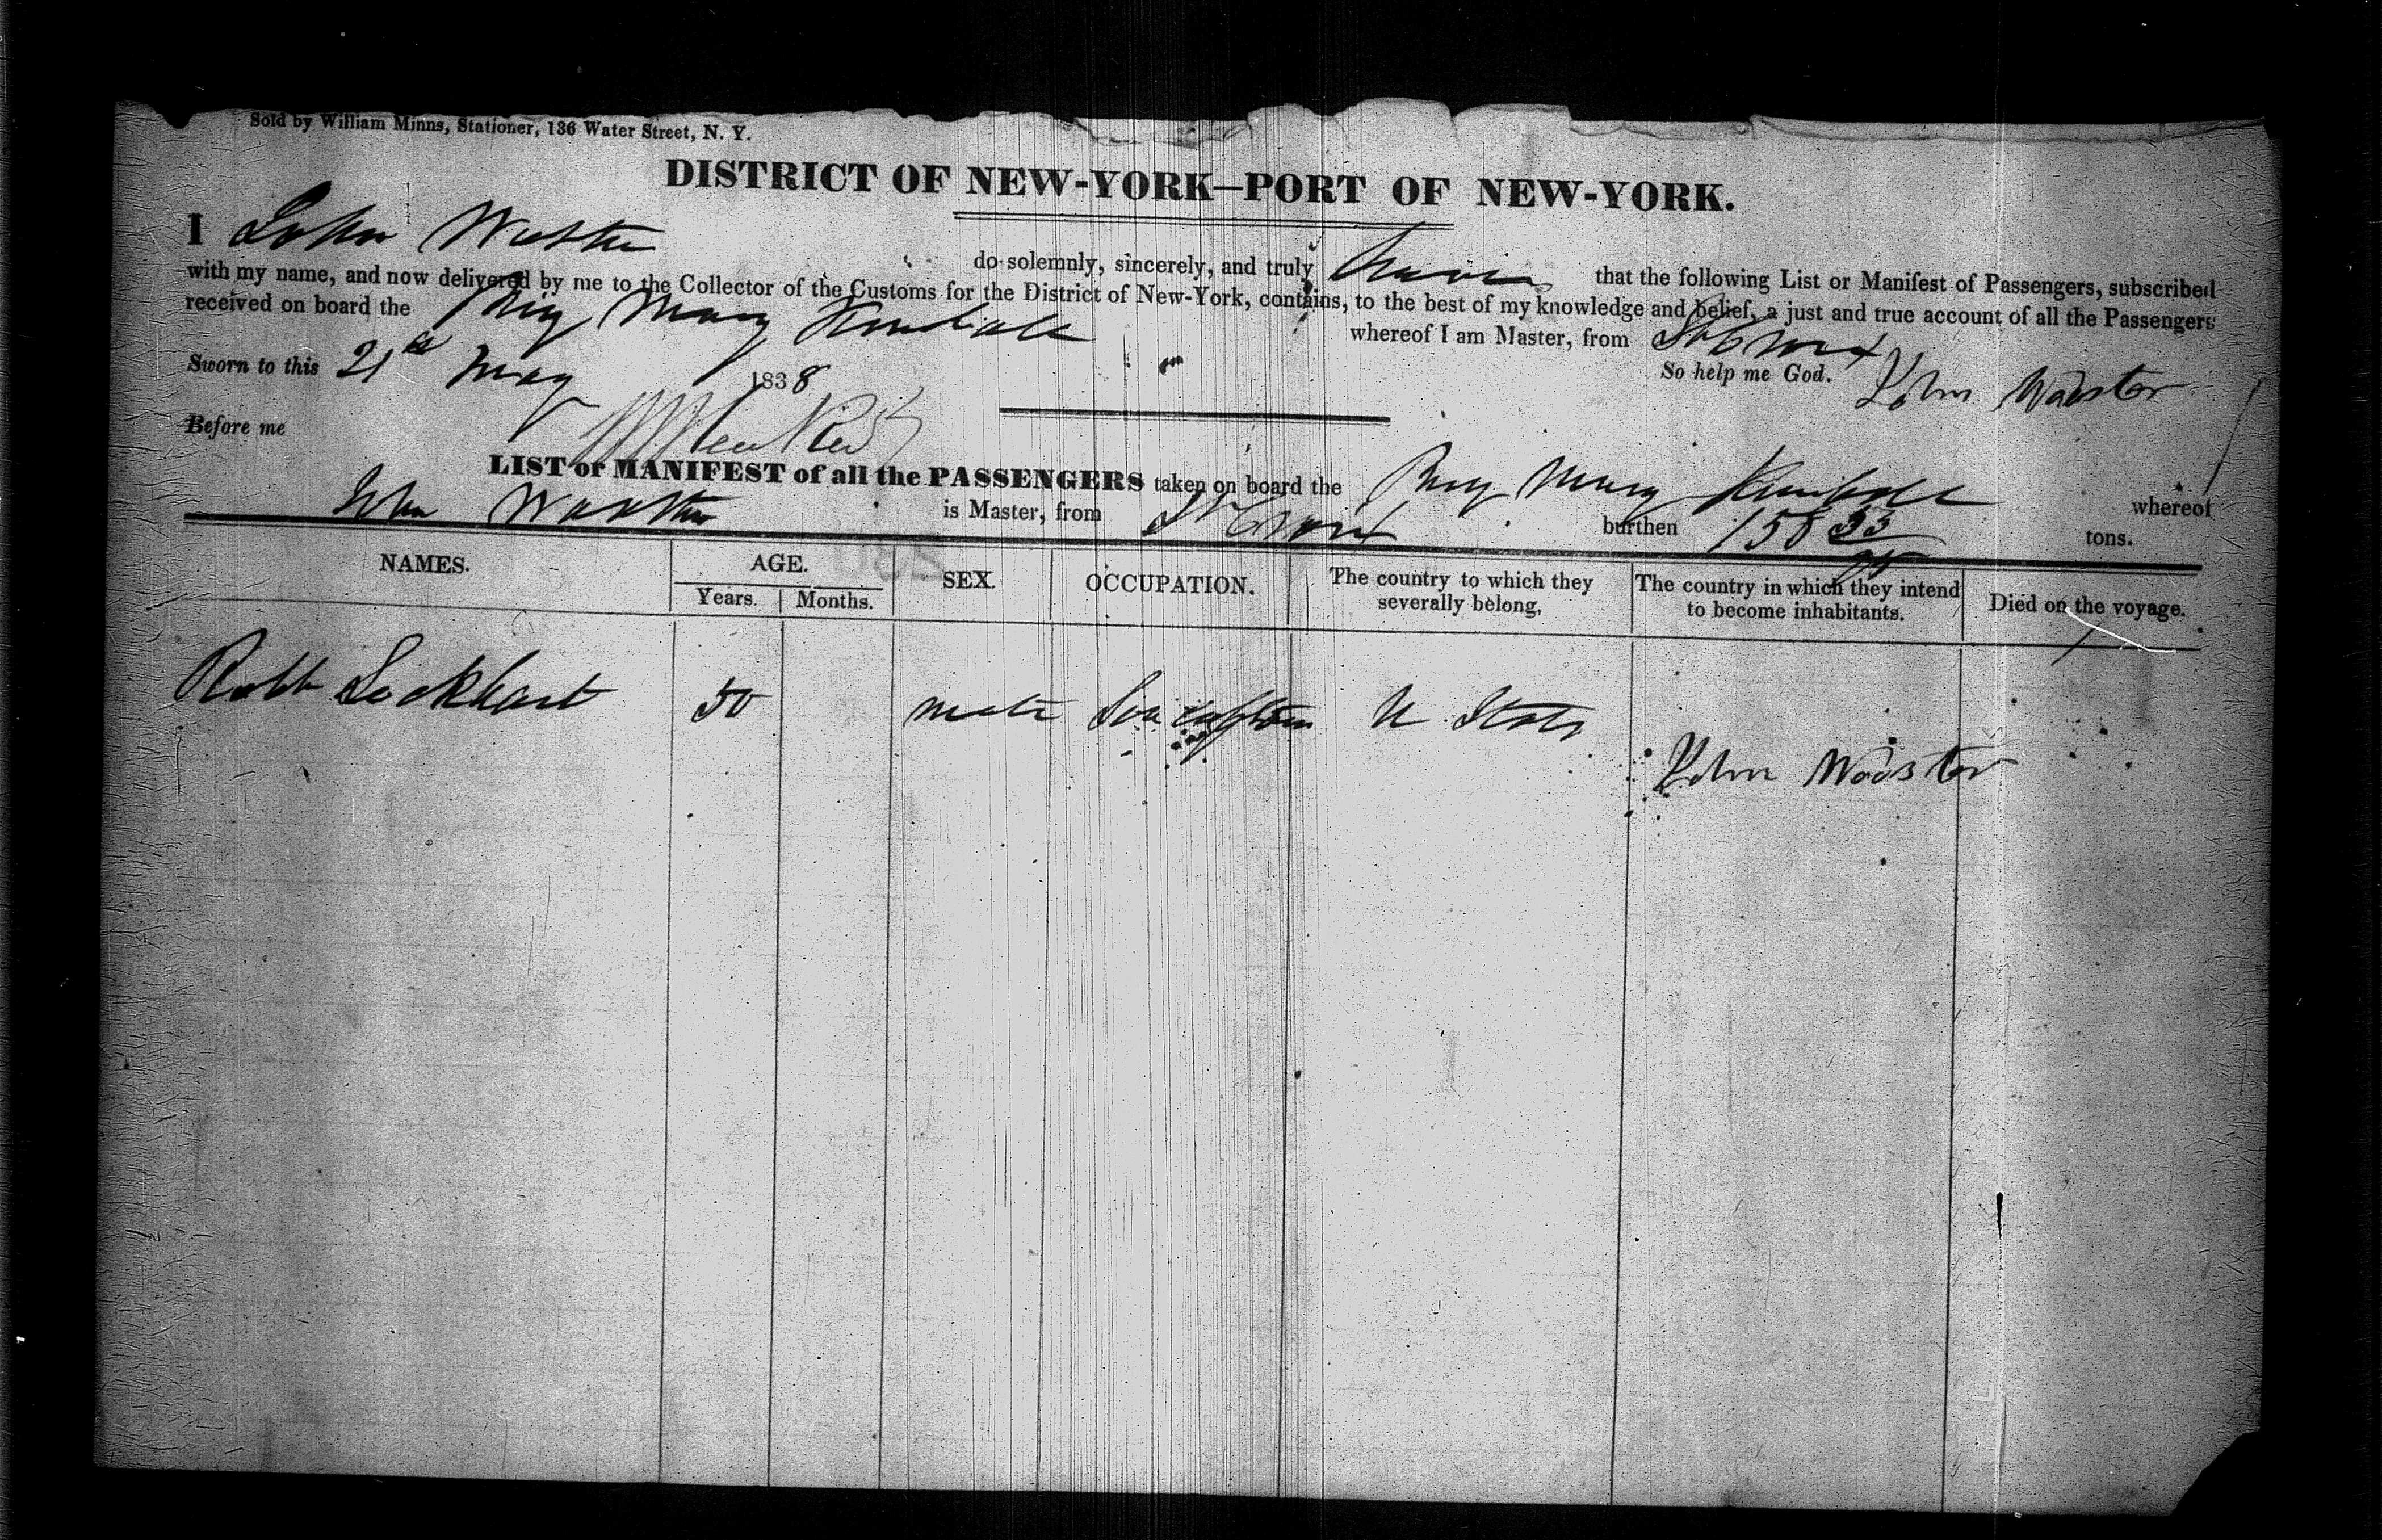 Sold by William Minns, Stationer, 136 Water Street, N. Y.
DISTRICT OF NEW-YORK—PORT OF NEW-YORK.
I John Wooster do solemnly, sincerely, and truly that the following List or Manifest of Passengers, subscribed
with my name, and now delivered by me to the Collector of the Customs for the District of New-York, contains, to the best of my knowledge and belief, a just and true account of all the Passengers
received on board the Brig Mary Kimball whereof I am Master, from St Croix
Sworn to this 21st May 1838 So help me God. John Wooster
Before me
LIST or MANIFEST of all the PASSENGERS taken on board the Brig Mary Kimball whereof
John Wooster is Master, from St Croix burthen 158 33/95 tons.
NAMES. AGE. SEX. OCCUPATION. The country to which they severally belong, The country in which they intend to become inhabitants. Died on the voyage.
Years. Months.
Robt Lockhart 50 male Sea captain U States
John Wooster